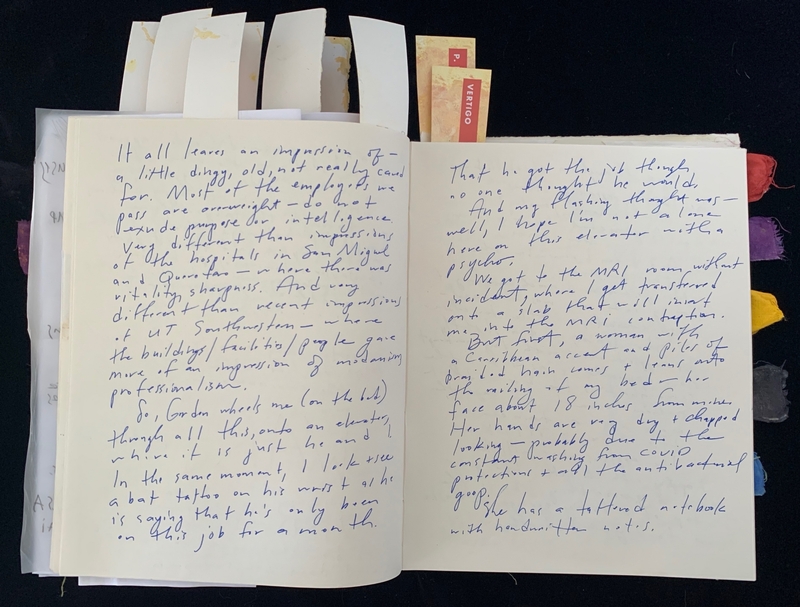 P.
VERTIGO
It all leaves an impression of –
a little dingy, old, not really cared
for. Most of the employees we
pass are overweight – do not
exude purpose or intelligence.
Very different than impressions
of the hospitals in San Miguel
and Queretaro – where there was
vitality, sharpness. And very
different than recent impressions
of UT Southwestern – where
the buildings/facilities/people gave
more of an impression of modernism,
professionalism.
So, Gordon wheels me (on the bed)
through all this, onto an elevator,
where it is just he and I.
In the same moment, I look + see
a bat tattoo on his wrist as he
is saying that he's only been
on this job for a month.
That he got the job though
no one thought he would.
And my flashing thought was –
well, I hope I'm not alone
here on this elevator with a
psycho.
We got to the MRI room without
incident, where I get transferred
onto a slab that will insert
me into the MRI contraption.
But first, a woman with
a Caribbean accent and piles of
braided hair comes + leans onto
the railing of my bed – her
face about 18 inches from mine.
Her hands are very dry + chapped
looking – probably due to the
constant washing from COVID
protections + all the antibacterial
goop.
She has a tattered notebook
with handwritten notes.